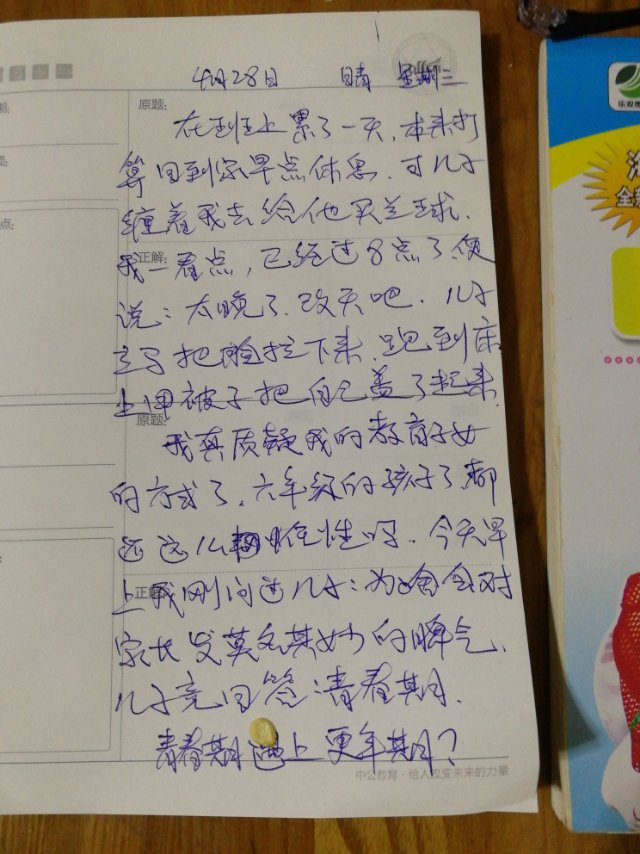 4月28日 晴 星期三
原题:
在班上累了一天,本来打
算回到家早点休息.可儿子
缠着我去给他买兰球.
正解:
我一看点,已经过8点了,便
说:太晚了.改天吧.儿子
立马把脸拉下来.跑到床
上用被子把自己盖了起来.
原题:
我真质疑我的教育子女
的方式了.六年级的孩子了都
还这么任性吗.今天早
正解:
上我刚问过儿子:为啥会对
家长发莫名其妙的脾气.
儿子竟回答:青春期.
青春期遇上更年期?
中公教育·给人改变未来的力量
点: